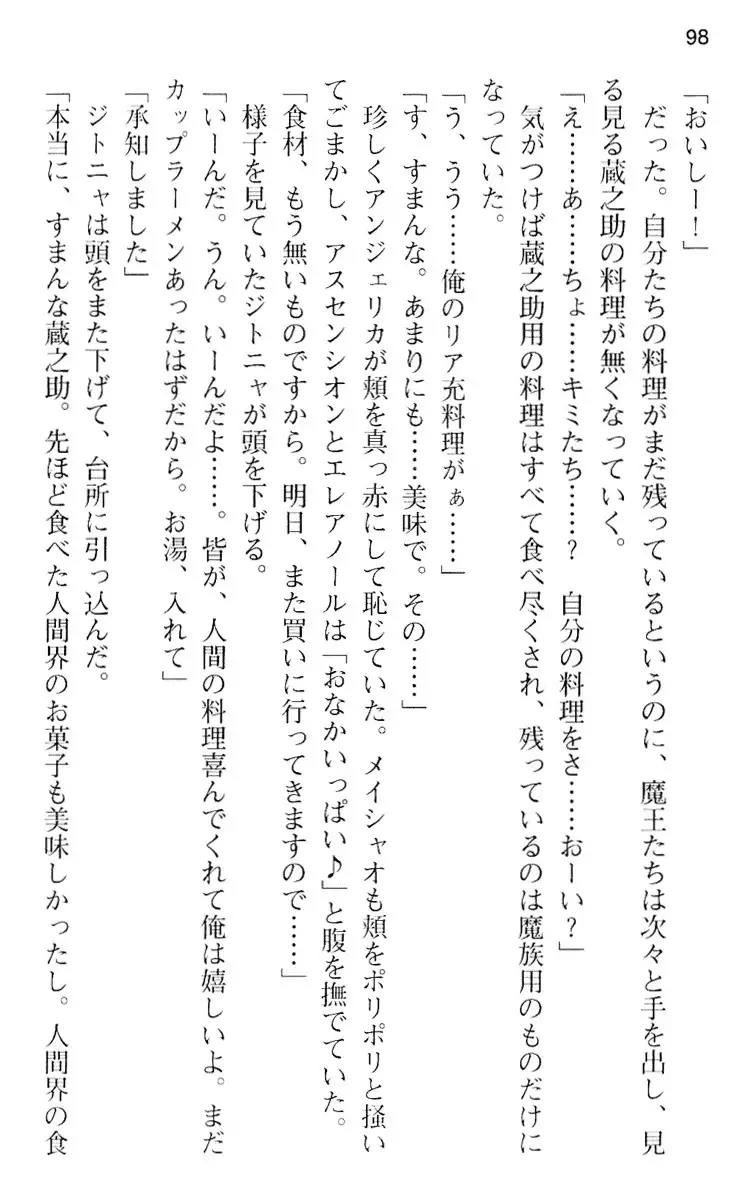 98
「おいしー！」
　だった。自分たちの料理がまだ残っているというのに、魔王たちは次々と手を出し、見
る見る蔵之助の料理が無くなっていく。
「え……あ……ちょ……キミたち……？　自分の料理をさ……おーい？」
　気がつけば蔵之助用の料理はすべて食べ尽くされ、残っているのは魔族用のものだけに
なっていた。
「う、うう……俺のリア充料理がぁ……」
「す、すまんな。あまりにも……美味で。その……」
　珍しくアンジェリカが頬を真っ赤にして恥じていた。メイシャオも頬をポリポリと掻い
てごまかし、アスセンシオンとエレアノールは「おなかいっぱい♪」と腹を撫でていた。
「食材、もう無いものですから。明日、また買いに行ってきますので……」
　様子を見ていたジトニャが頭を下げる。
「いーんだ。うん。いーんだよ……。皆が、人間の料理喜んでくれて俺は嬉しいよ。まだ
カップラーメンあったはずだから。お湯、入れて」
「承知しました」
　ジトニャは頭をまた下げて、台所に引っ込んだ。
「本当に、すまんな蔵之助。先ほど食べた人間界のお菓子も美味しかったし。人間界の食